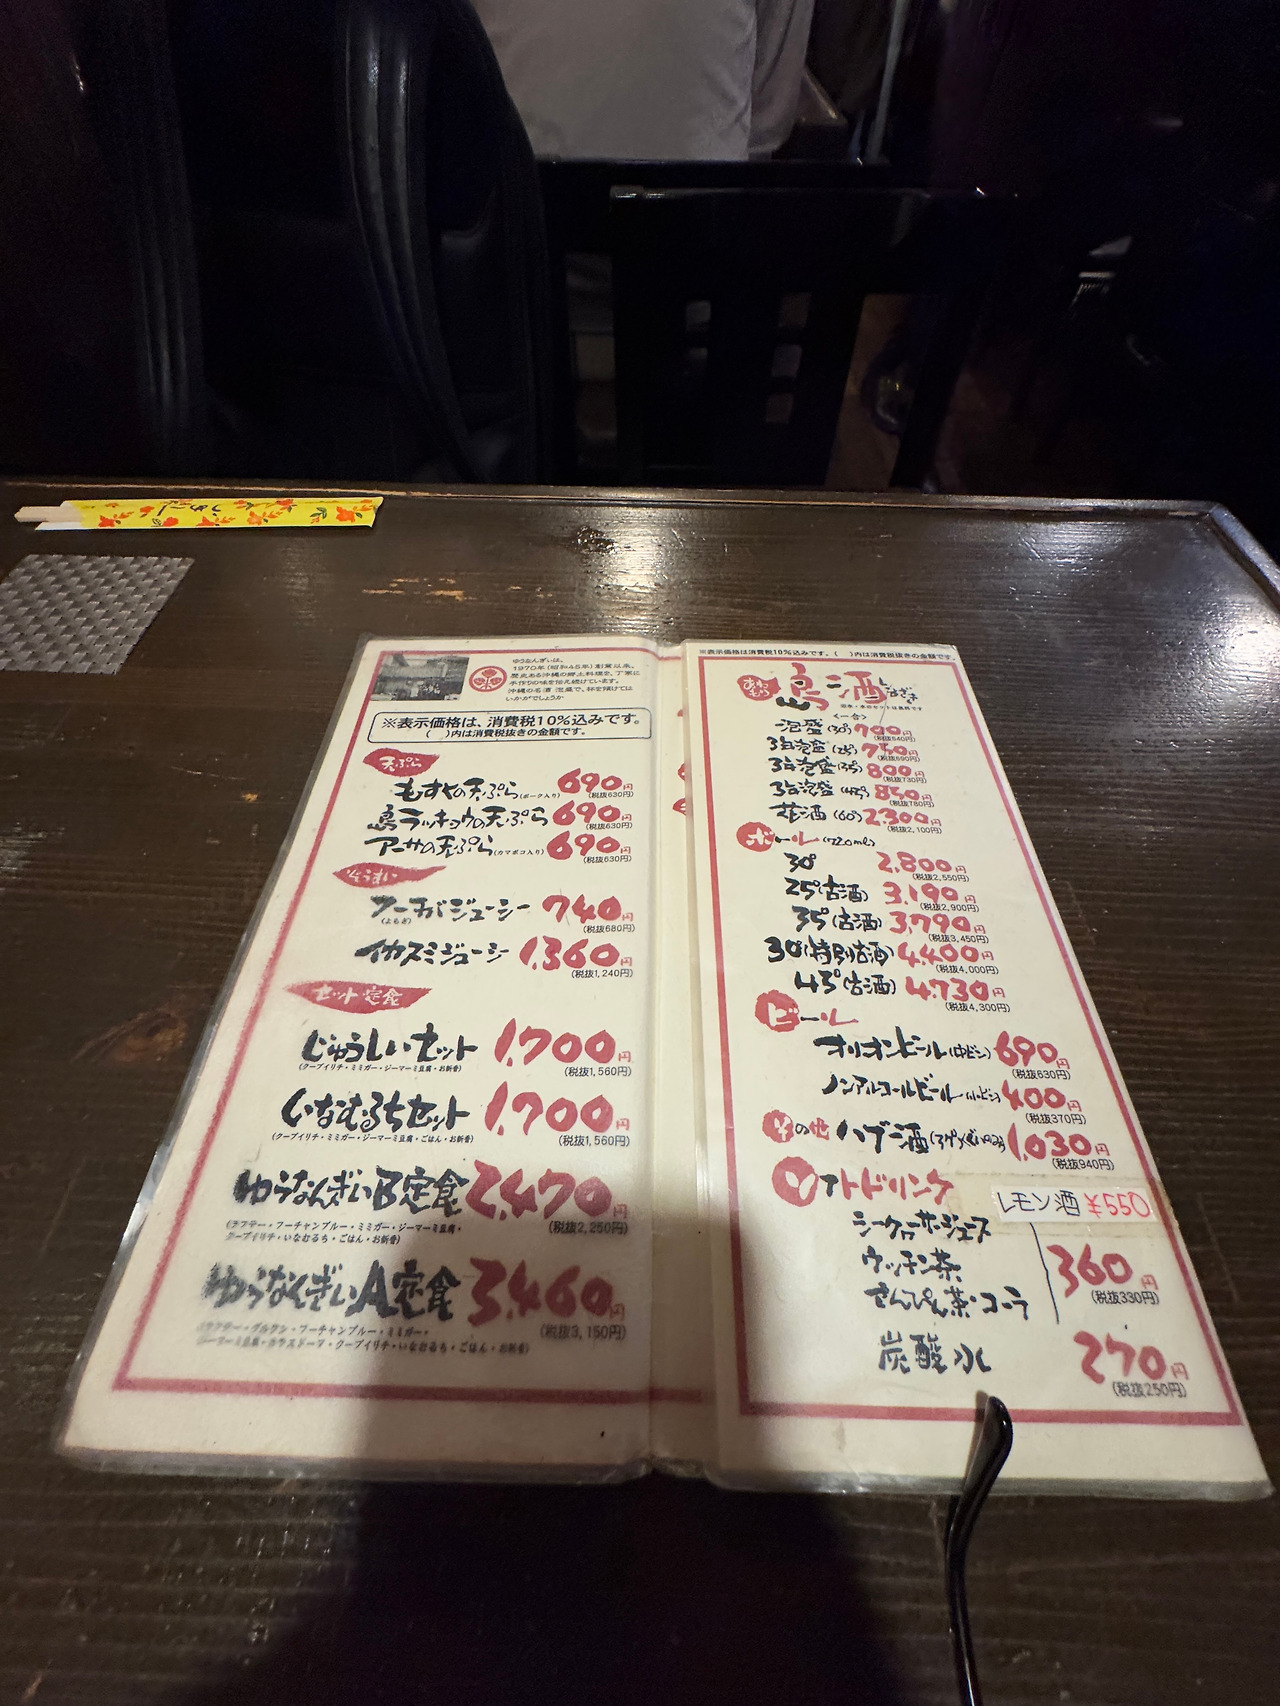 ゆうなんぎぃは、
1970年(昭和45年)創業以来、
歴史ある沖縄の郷土料理を、丁寧に
手作りの味を伝え続けています。
沖縄の名酒 泡盛で、杯を傾けては
いかがでしょうか
※表示価格は、消費税10%込みです。
( )内は消費税抜きの金額です。
天ぷら
もずくの天ぷら(ポーク入り) 690円
(税抜630円)
島ラッキョウの天ぷら 690円
(税抜630円)
アーサの天ぷら(カマボコ入り) 690円
(税抜630円)
ぞうすい
フーチバジューシー 740円
(よもぎ) (税抜680円)
イカスミジューシー 1,360円
(税抜1,240円)
セット・定食
じゅうしいセット 1,700円
(クーブイリチ・ミミガー・ジーマーミ豆腐・お新香) (税抜1,560円)
いなむるちセット 1,700円
(クーブイリチ・ミミガー・ジーマーミ豆腐・ごはん・お新香) (税抜1,560円)
ゆうなんぎぃB定食 2,470円
(ラフテー・フーチャンプルー・ミミガー・ジーマーミ豆腐・ (税抜2,250円)
クーブイリチ・いなむるち・ごはん・お新香)
ゆうなんぎぃA定食 3,460円
(ラフテー・グルクン・フーチャンプルー・ミミガー・ (税抜3,150円)
ジーマーミ豆腐・カラスドーフ・クーブイリチ・いなむるち・ごはん・お新香)
※表示価格は消費税10%込みです。( )内は消費税抜きの金額です。
あわもり 島酒
<一合>
泡盛(30°) 700円
(税抜640円)
3年泡盛(25°) 750円
(税抜690円)
3年泡盛(35°) 800円
(税抜730円)
3年泡盛(43°) 850円
(税抜780円)
花酒(60°) 2,300円
(税抜2,100円)
ボトル(720ml)
30° 2,800円
(税抜2,550円)
25°(古酒) 3,190円
(税抜2,900円)
35°(古酒) 3,790円
(税抜3,450円)
30°(特別古酒) 4,400円
(税抜4,000円)
43°(古酒) 4,730円
(税抜4,300円)
ビール
オリオンビール(中ビン) 690円
(税抜630円)
ノンアルコールビール(小ビン) 400円
(税抜370円)
その他 ハブ酒 1,030円
(税抜940円)
ソフトドリンク
レモン酒 ¥550
シークヮーサージュース
ウッチン茶 360円
さんぴん茶・コーラ (税抜330円)
炭酸水 270円
(税抜250円)